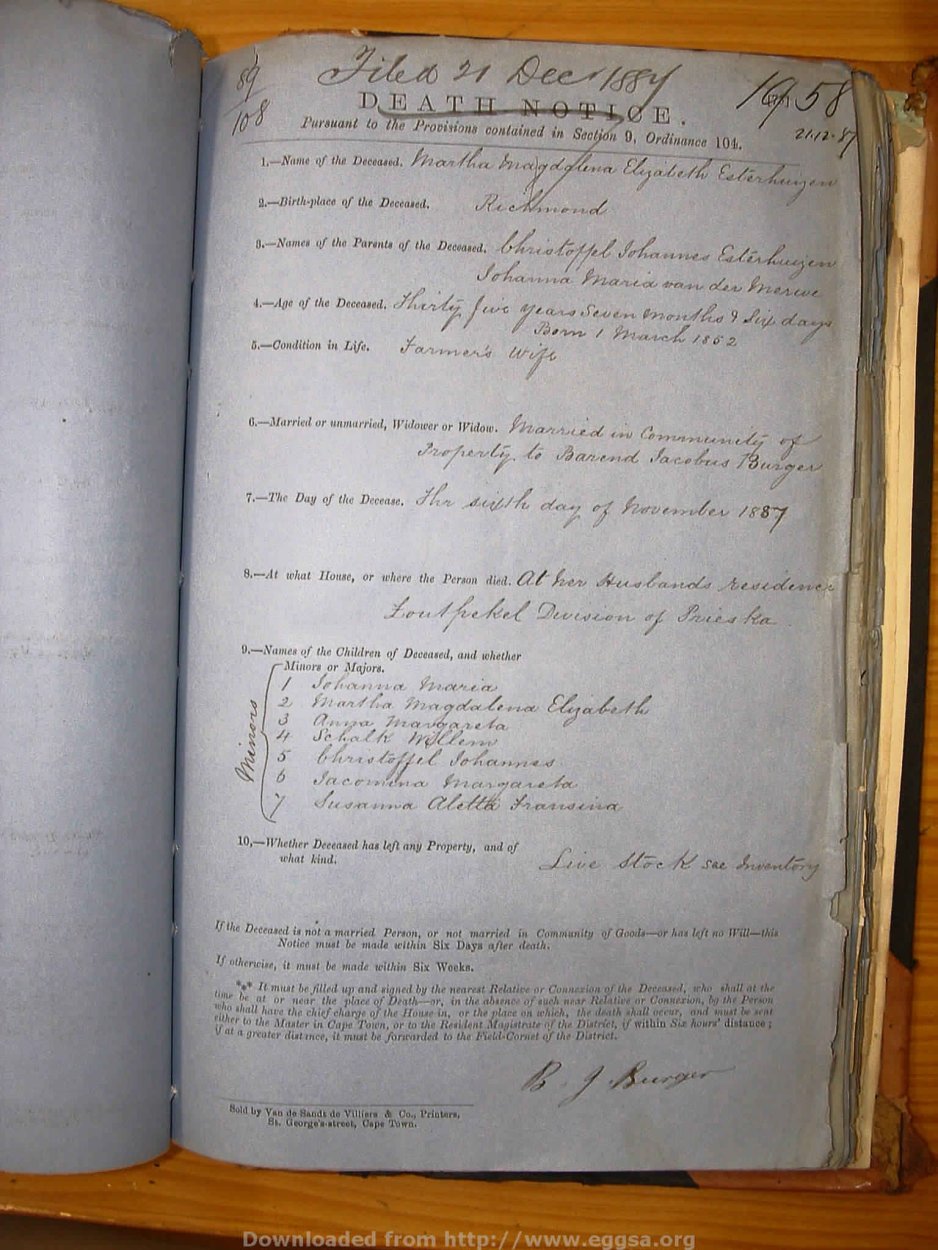 89
108
Filed 21 Dec 1887
1958
DEATH NOTICE.
21.12.87
Pursuant to the Provisions contained in Section 9, Ordinance 104.
1.—Name of the Deceased. Martha Magdalena Elizabeth Esterhuizen
2.—Birth-place of the Deceased. Richmond
3.—Names of the Parents of the Deceased. Christoffel Johannes Esterhuizen
Johanna Maria van der Merwe
4.—Age of the Deceased. Thirty five years Seven months & Six days
Born 1 March 1852
5.—Condition in Life. Farmer's Wife
6.—Married or unmarried, Widower or Widow. Married in Community of
Property to Barend Jacobus Burger
7.—The Day of the Decease. The sixth day of November 1887
8.—At what House, or where the Person died. At her Husbands residence
Zoutpekel Division of Prieska
9.—Names of the Children of Deceased, and whether
Minors or Majors.
Minors
1 Johanna Maria
2 Martha Magdalena Elizabeth
3 Anna Margareta
4 Schalk Willem
5 Christoffel Johannes
6 Jacomina Margareta
7 Susanna Aletta Fransina
10,—Whether Deceased has left any Property, and of
what kind. Live Stock see Inventory
If the Deceased is not a married Person, or not married in Community of Goods—or has left no Will—this
Notice must be made within Six Days after death.
If otherwise, it must be made within Six Weeks.
*** It must be filled up and signed by the nearest Relative or Connexion of the Deceased, who shall at the
time be at or near the place of Death—or, in the absence of such near Relative or Connexion, by the Person
who shall have the chief charge of the House in, or the place on which, the death shall occur, and must be sent
either to the Master in Cape Town, or to the Resident Magistrate of the District, if within Six hours' distance;
if at a greater distance, it must be forwarded to the Field-Cornet of the District.
B. J. Burger
Sold by Van de Sandt de Villiers & Co., Printers,
St. George's-street, Cape Town.
Downloaded from http://www.eggsa.org